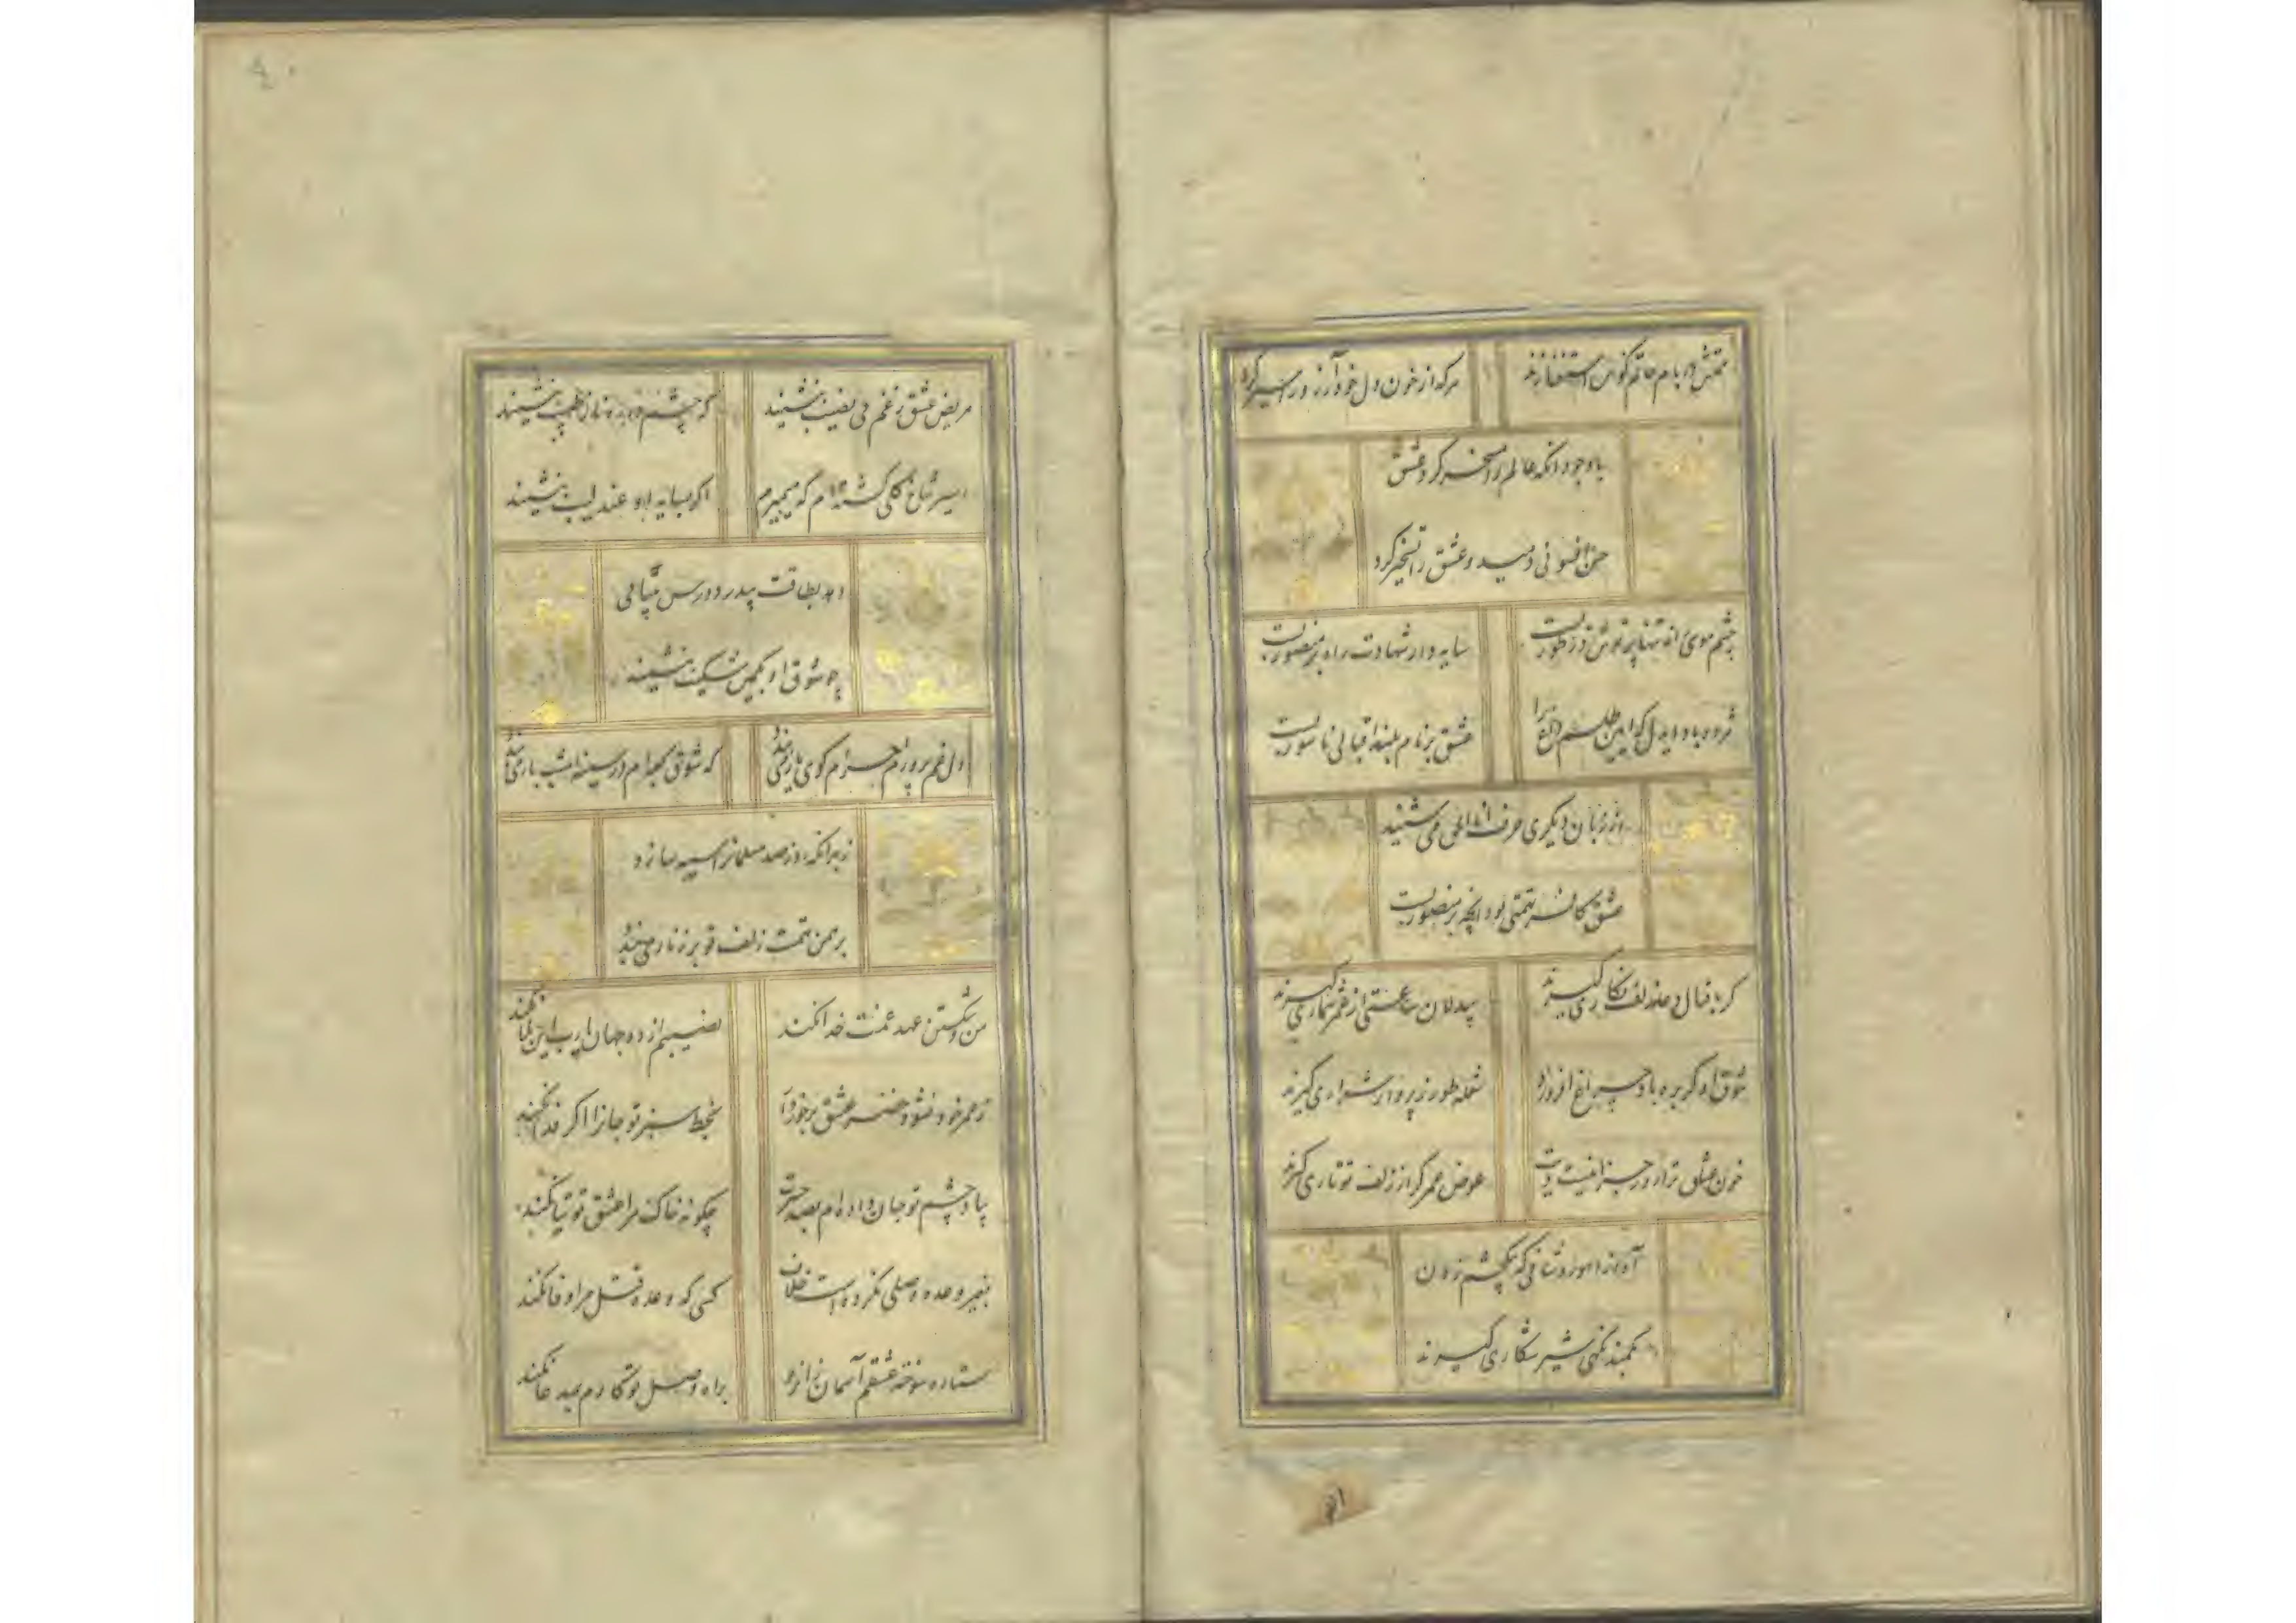 همتش در بام حاتم کوس استغنا زند
هرکه از خون دل خود آرزو را سیر کرد
باوجود آنکه عالم را مسخر کرد عشق
حسن افسونی دمید و عشق را تسخیر کرد
چشم موسی نه تنها پرتوش در طورست
سایه دار شهادت راه بر منصورست
مژده باد ایدل که این طلسم داغ را
عشق بر نام بلند اقبالی ناسورست
از زبان دیگری حرف انا الحق می شنید
عشق کافر تهمتی بود آنچه بر منصورست
کر بدنبال دعا زلف نکاری کیرند
بیدلان ساعتی از عمر شماری کیرند
شوق او کر بره باد چراغ افروزد
شعله طور ز پرواز شراری کیرند
خون عشاق ترا روز جزا نیست دیت
عوض عمر کر از زلف تو تاری کیرند
آه از آهو روشانی که بیکچشم زدن
بکمند نکهی شیر شکاری کیرند
۵۱
مریض عشق ز غم بی نصیب ننشیند
که چشم درد بره از طبیب ننشیند
اسیر شاخ کلی کشته ام که میمیرم
اکر بسایه او عندلیب ننشیند
دهد بطاقت پدرود درس بیتابی
چو شوق او بکمین شکیب ننشیند
دل غم پرورم احرام کوی یار می بندد
که شوق کعبه ام در سینه امشب بار می بندد
ز بهر آنکه روز صد مسلمان را سیه سازد
برهمن تهمت زلف تو بر زنار می بندد
من و شکستن عهد غمت خدا نکند
نصیبم از دو جهان یارب این بلا نکند
ز عمر خود نشود خضر عشق برخوردار
بخط سبز تو جانرا اکر فدا نکند
بیاد چشم تو جان داده ام بصد حسرت
چکونه خاک مرا عشق توتیا نکند
بغیر وعده وصلی نکرده است خلاف
کسی که وعده قتل مرا وفا نکند
ستاره سوخته عشقم آسمان ز انرو
براه وصل تو کارم بمدعا نکند